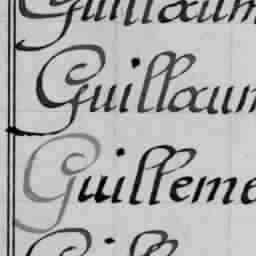 Guillaum
Guillaum
Guilleme